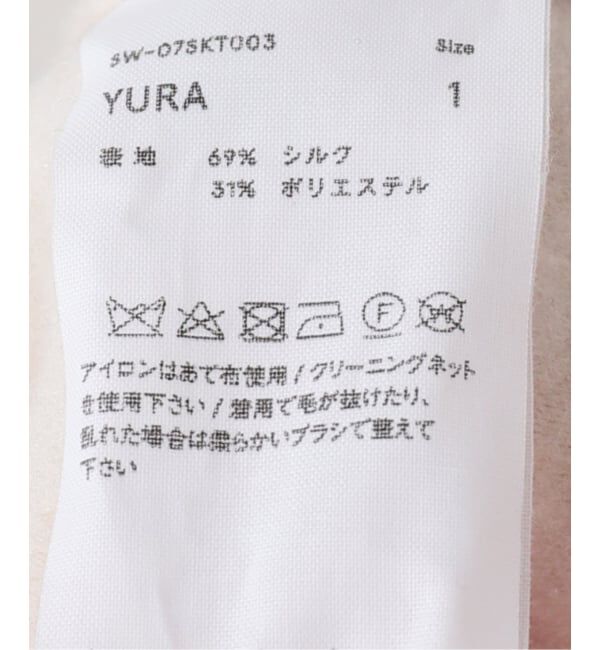 SW-07SKT003 Size
YURA 1
表地 69% シルク
31% ポリエステル
F W
アイロンはあて布使用/クリーニングネット
を使用下さい/着用で毛が抜けたり、
乱れた場合は柔らかいブラシで整えて
下さい